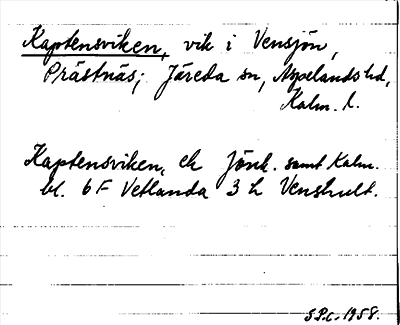 Kaptensviken, vik i Vensjön,
Prästnäs; Järeda sn, Aspelands hd,
Kalm. l.
Kaptensviken, ek Jönk. samt Kalm.
bl. 6 F Vetlanda 3 h Venshult.
S.P.C. 1958.